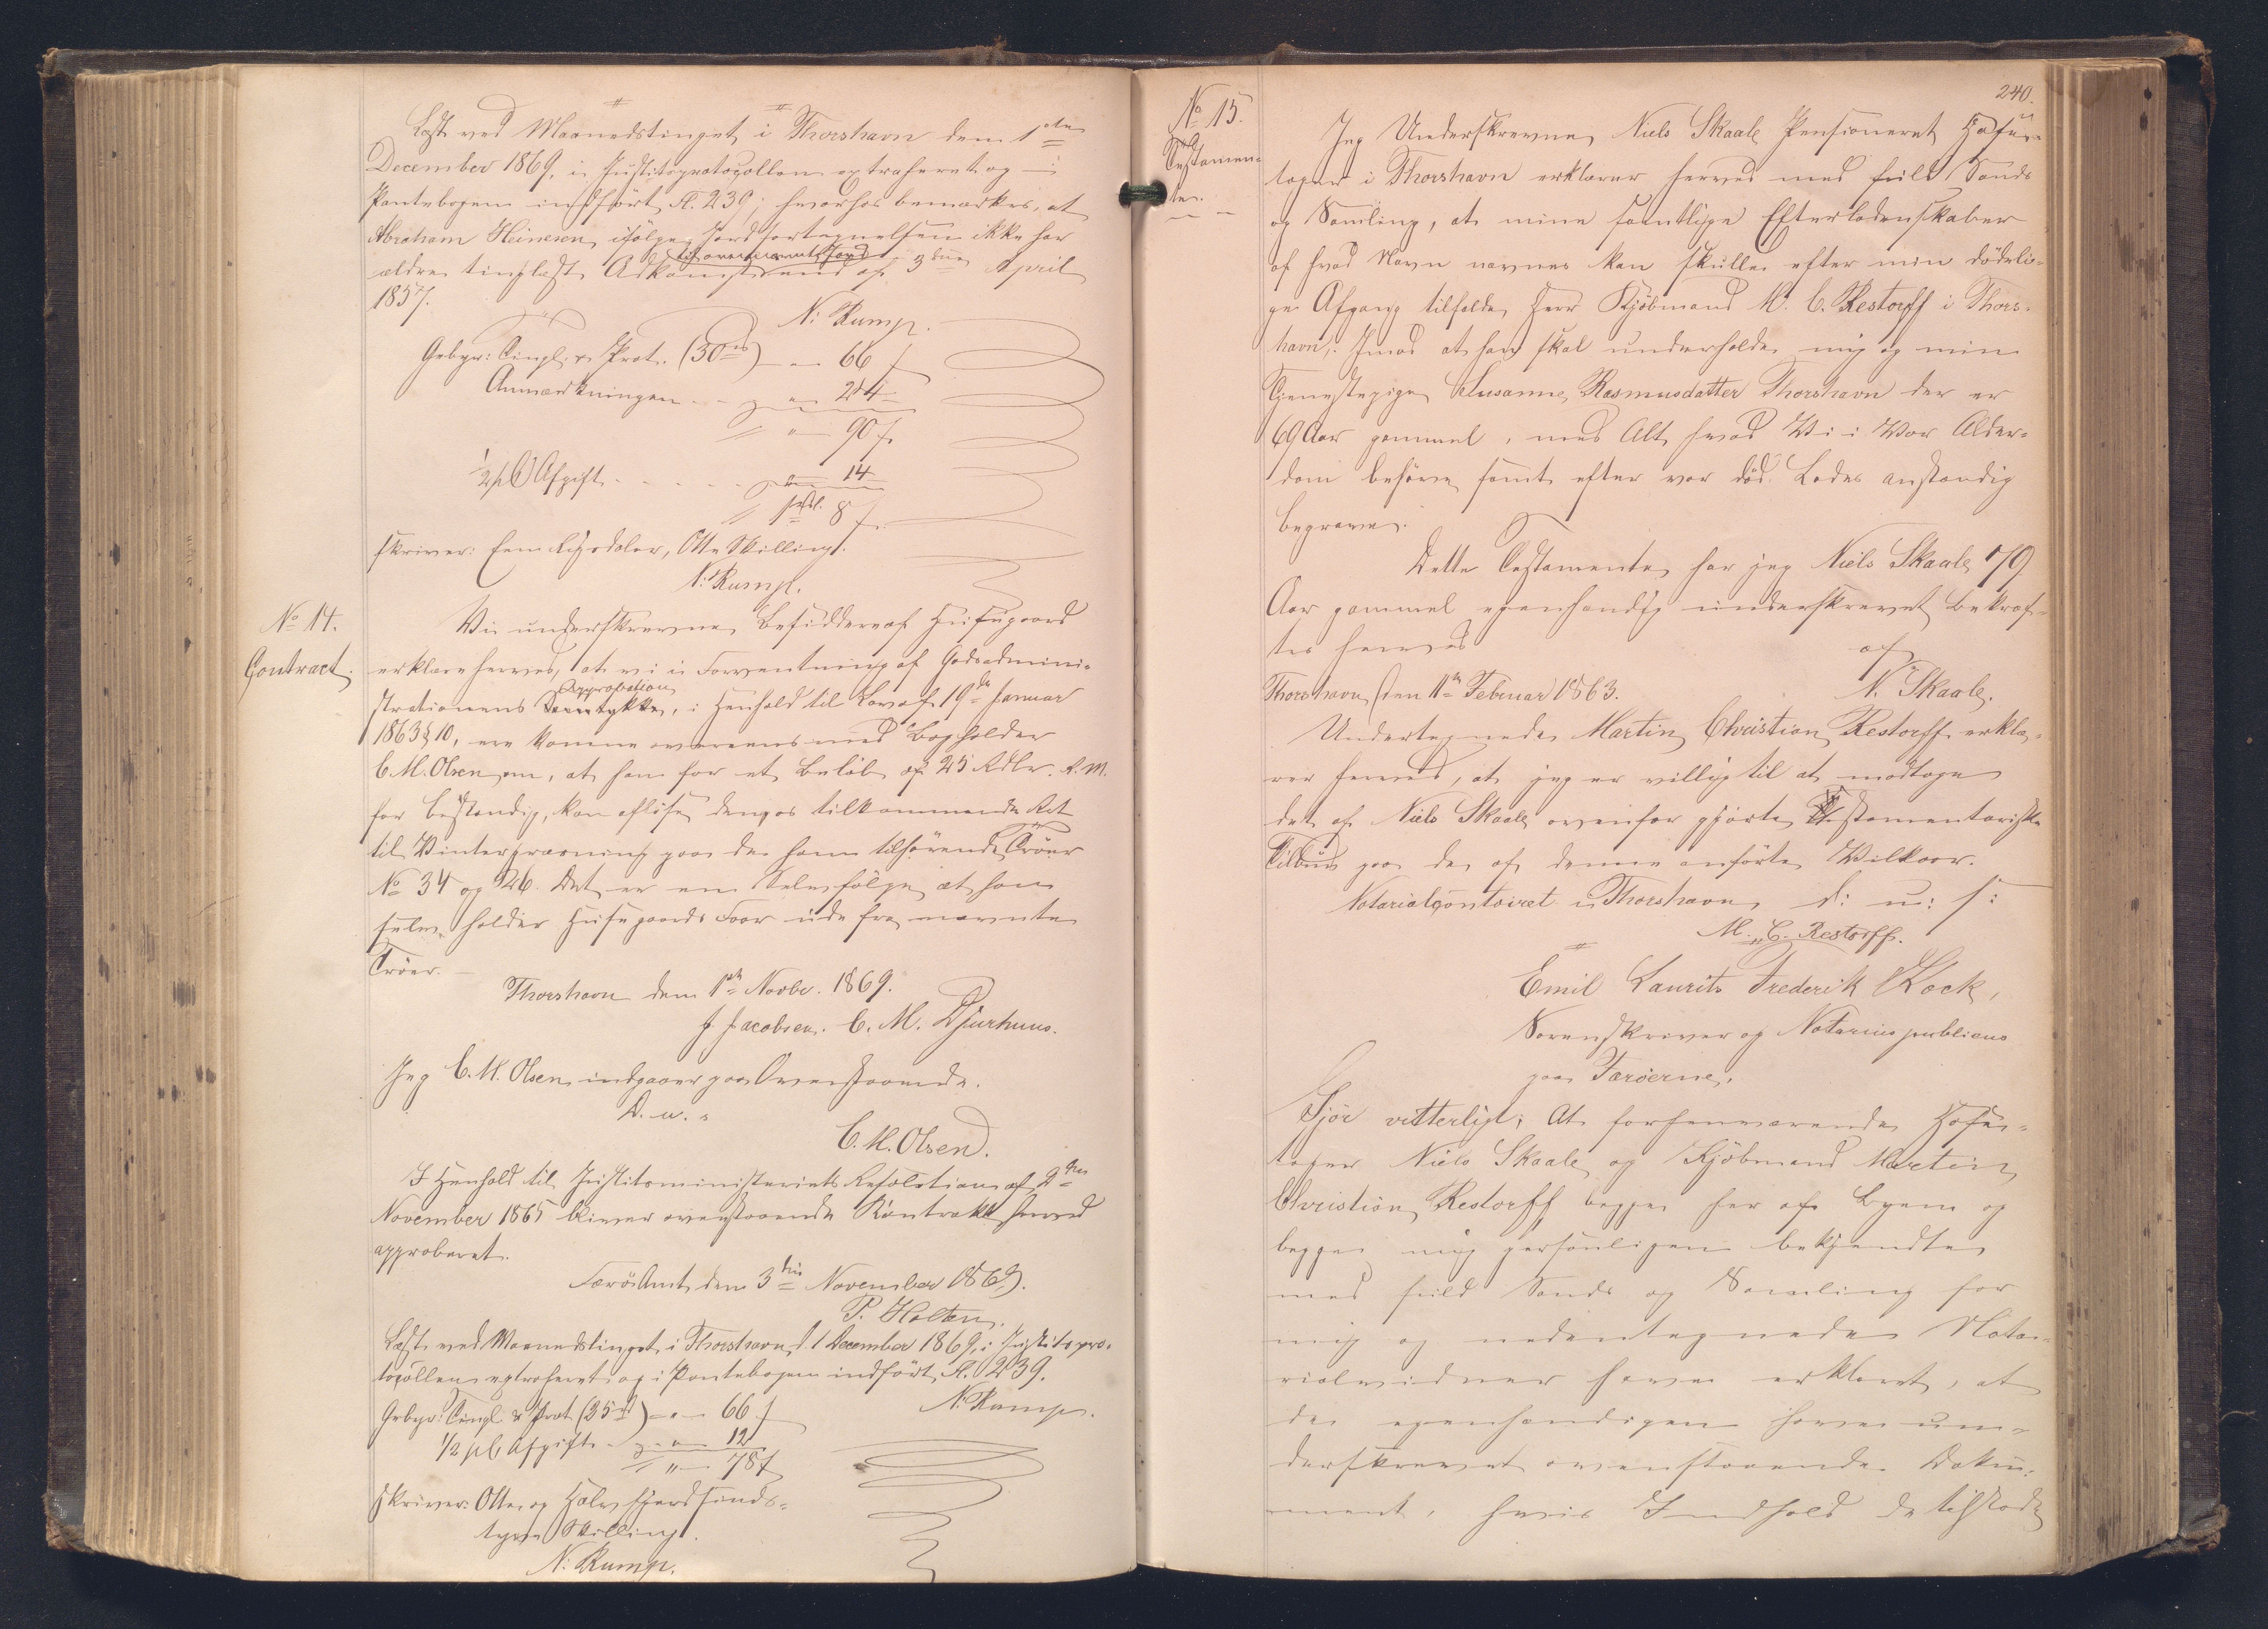 Læst ved Maanedstinget i Thorshavn den 1ste
December 1869, i Justitsprotocollen extraheret og i
Pantebogen indført Fl. 239; hvorhos bemærkes, at
Abraham Heinesen ifølge Jordfortegnelsen ikke har
ældre tinglæst Adkomst end af 3die April
1857.
N: Rump.
Gebyr: Tingl. & Prot. (50 rd) — " — 66 ß
Anmærkningen — " — 24 -
" — 90 ß
1/2 pC Afgift . . . . 14
1 Rdl. 8 ß
skriver: Een Rigsdaler, Otte Skilling.
N: Rump.
No 14.
Contract.
Vi underskrevne Besiddere af Huusgaard
erklære herved, at vi i Forventning af Godsadmini-
strationens Approbation, i Henhold til Lov af 19de Januar
1863 § 10, ere komne overeens med Bogholder
C. M. Olsen om, at han for et Beløb af 25 Rdlr. R. M.
for bestandig, kan afløse den os tilkommende Ret
til Vintergræsning paa de ham tilhørende Trøer
No 34 og 26. Det er en Selvfølge at han
selv holder Huusgaards Faar ude fra nævnte
Trøer. —
Thorshavn den 1ste Novbr. 1869.
J. Jacobsen. C. M. Djurhuus.
Jeg C. M. Olsen indgaaer paa Ovenstaaende.
D. u. s
C. M. Olsen.
I Henhold til Justitsministeriets Resolution af 2den
November 1865 bliver ovenstaaende Kontrakt herved
approberet.
Færø Amt den 3die November 1869.
P. Holten.
Læst ved Maanedstinget i Thorshavn d. 1 December 1869, i Justitspro-
tocollen extraheret og i Pantebogen indført, Fl. 239.
N: Rump.
Gebyr: Tingl. & Prot. (25 rd) — " — 66 ß
1/2 pC Afgift - " — 12
" — 78 ß
skriver: Otte og Halvfjerdsinds-
tyve Skilling.
N: Rump.
240.
No 15.
Testamen-
te.
Jeg Underskrevne Niels Skaale Pensioneret
i Thorshavn erklærer herved med fuld Sands
og Samling, at mine samtlige Efterladenskaber
af hvad Navn nævnes kan skulle efter min dødeli-
ge Afgang tilfalde Herr Kjøbmand M. C. Restorff i Thors-
havn, imod at han skal underholde mig og min
Tjenestepige Susanne Rasmusdatter Thorshavn der er
69 Aar gammel, med Alt hvad Vi i Vor Alder-
dom behøve samt efter vor død. Lades anstændig
begrave.
Dette Testamente har jeg Niels Skaale 79
Aar gammel egenhændig underskrevet bekræf-
tes herved
af
Thorshavn, den 11te Februar 1863.
N. Skaale.
Undertegnede Martin Christian Restorff erklæ-
rer herved, at jeg er villig til at modtage
det af Niels Skaale ovenfor gjorte Testamentariske
Tilbud paa de af denne anførte Vilkaar.
Notarialcontoiret i Thorshavn, d: u: s:
M. C. Restorff.
Emil Laurits Frederik Kock,
Sorenskriver og Notarius publicus
paa Færøerne,
Gjør vitterligt; At forhenværende
Niels Skaale og Kjøbmand Martin
Christian Restorff begge her af Byen og
begge mig personligen bekjendte
med fuld Sands og Samling for
mig og nedentegnede Nota-
rialvidner have erklæret, at
de egenhændigen have un-
derskrevet ovenstaaende Doku-
ment, hvis Indhold de tilstode